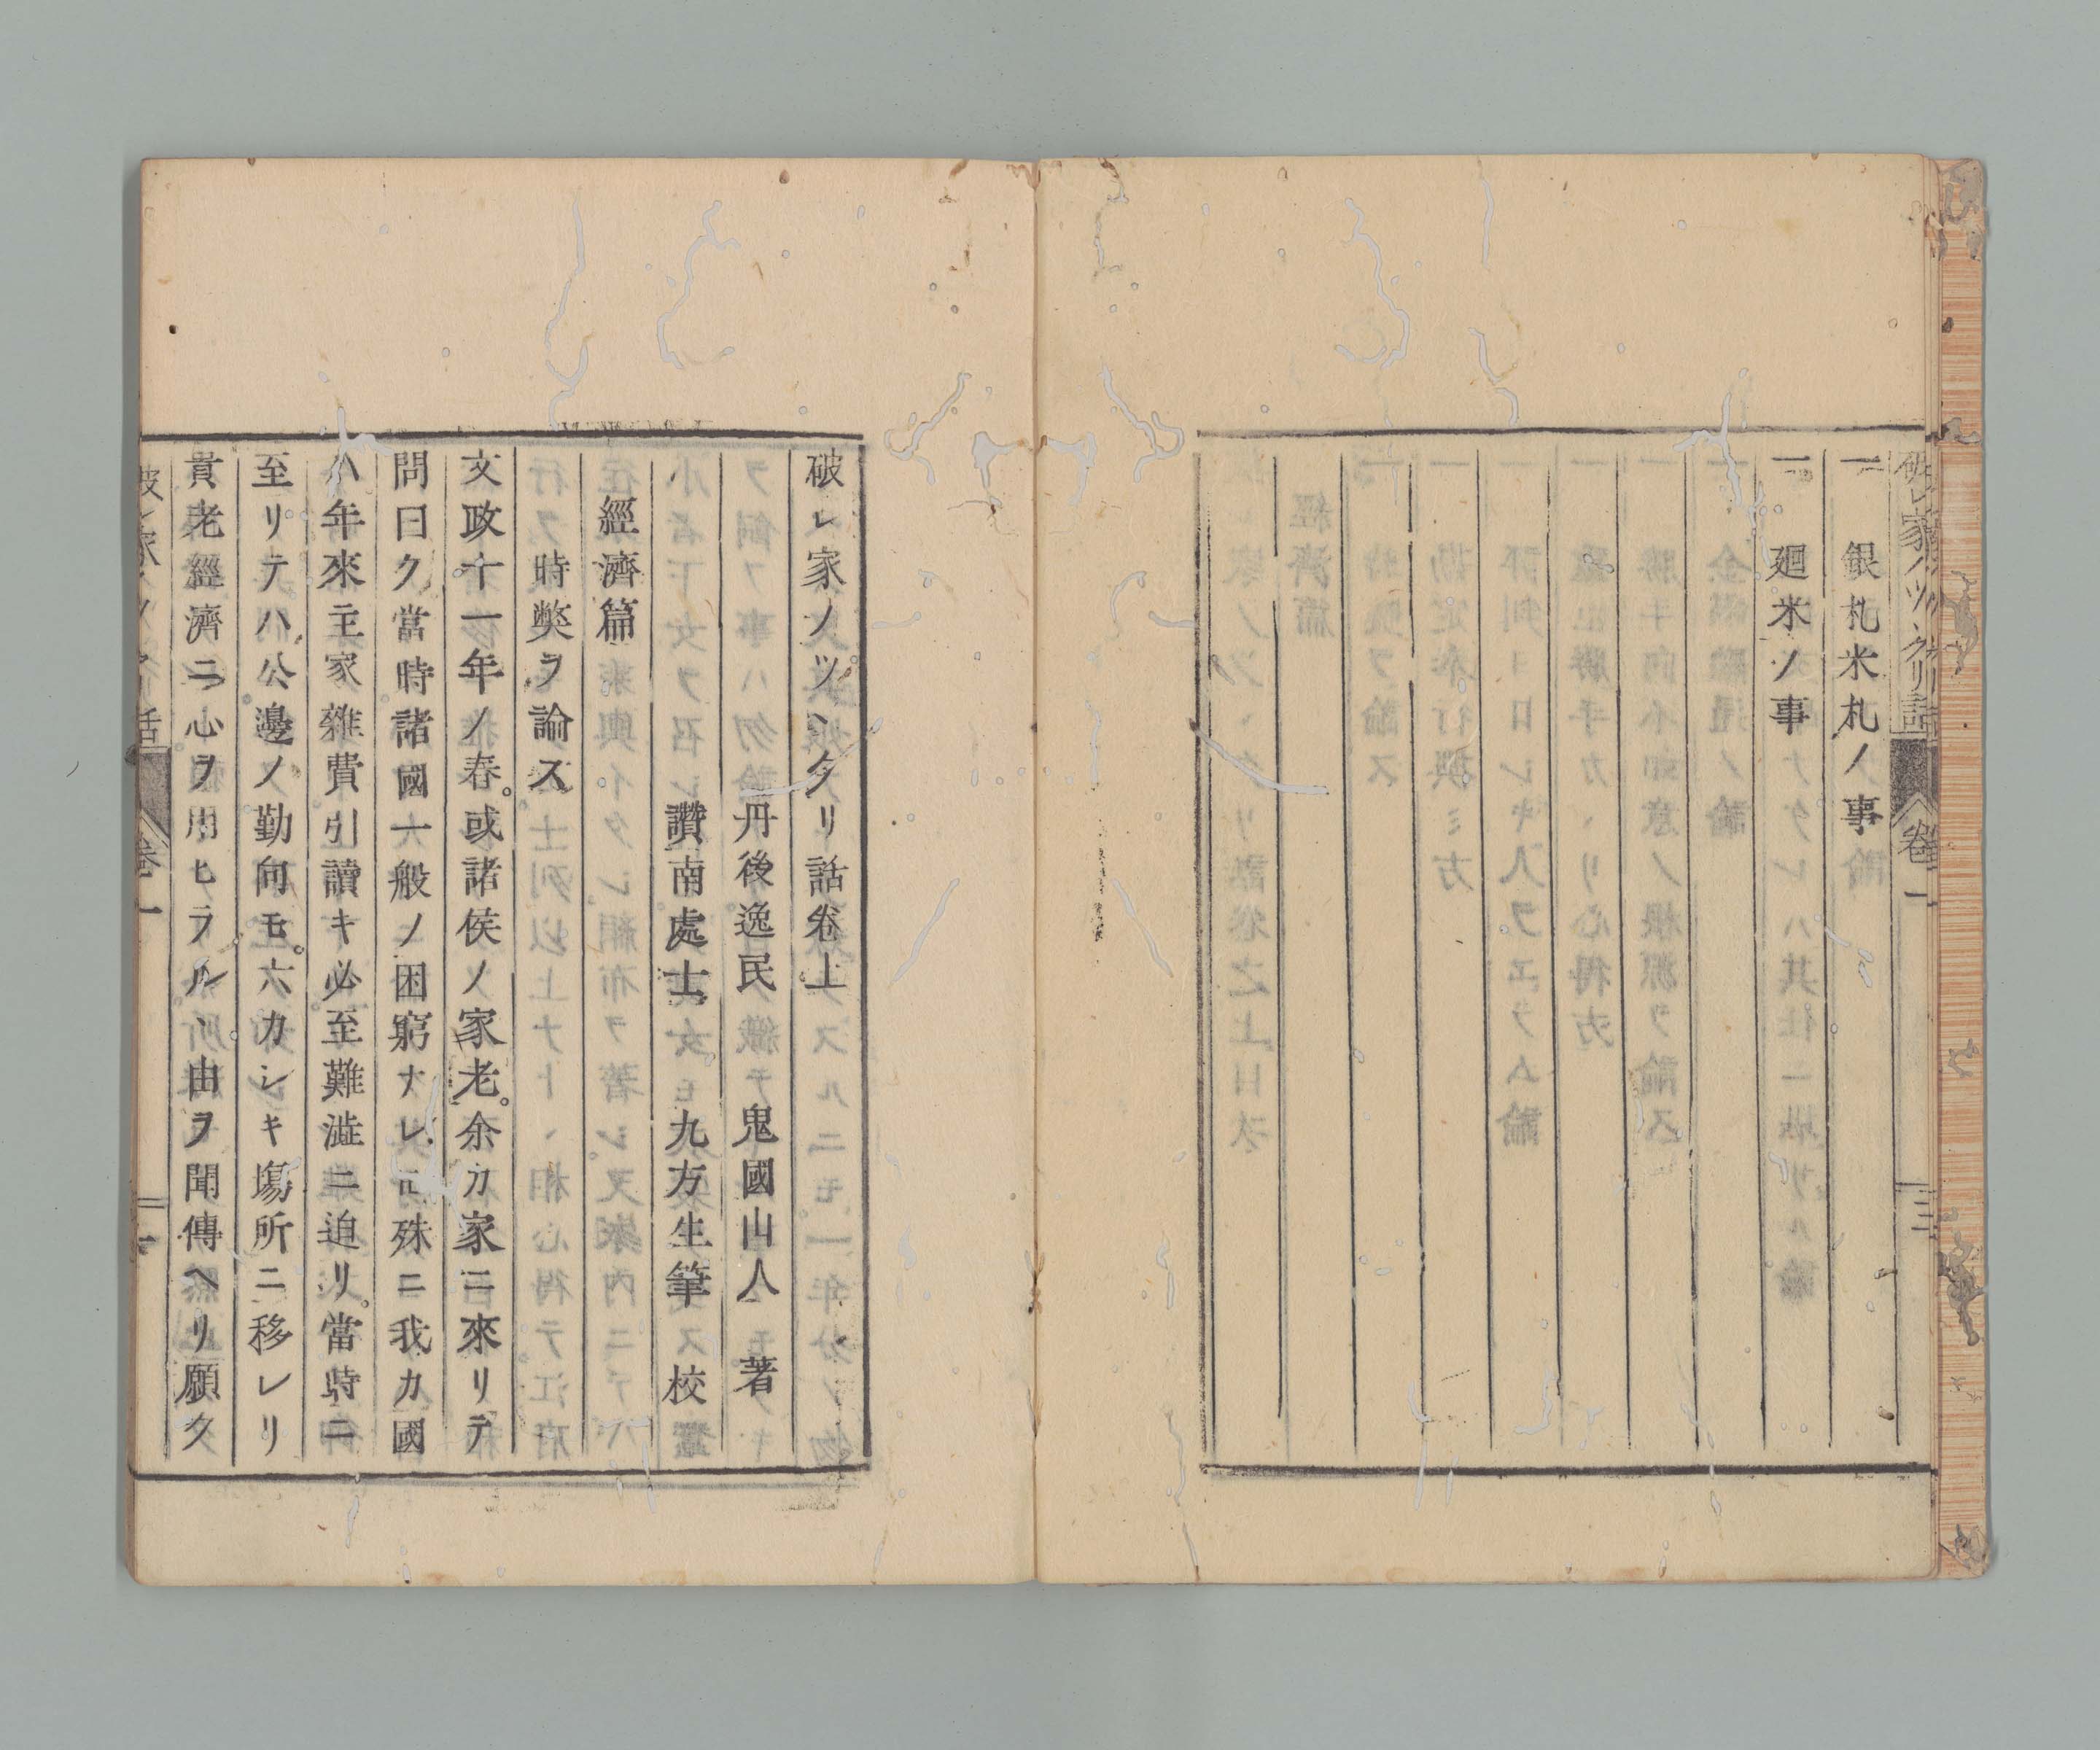 破レ家ノツヽクリ話　卷一　三
一　銀札米札ノ事
一　廻米ノ事
破レ家ノツヽクリ話卷上
丹後逸民　鬼國山人　著
讚南處士　九方生筆　校
經濟篇
時獘ヲ論ス
文政十一年ノ春。或諸侯ノ家老。余カ家ニ來リテ
問曰ク當時諸國一般ノ困窮ナレ𪜈殊ニ我カ國
八年來主家雜費引讀キ必至難澁ニ迫リ。當時ニ
至リテハ公邊ノ勤向モ。六カシキ塲所ニ移レリ
貴老經濟ニ心ヲ用ヒラルヽ由ヲ聞傳ヘリ願ク
破レ家ノツヽクリ話　卷一　一